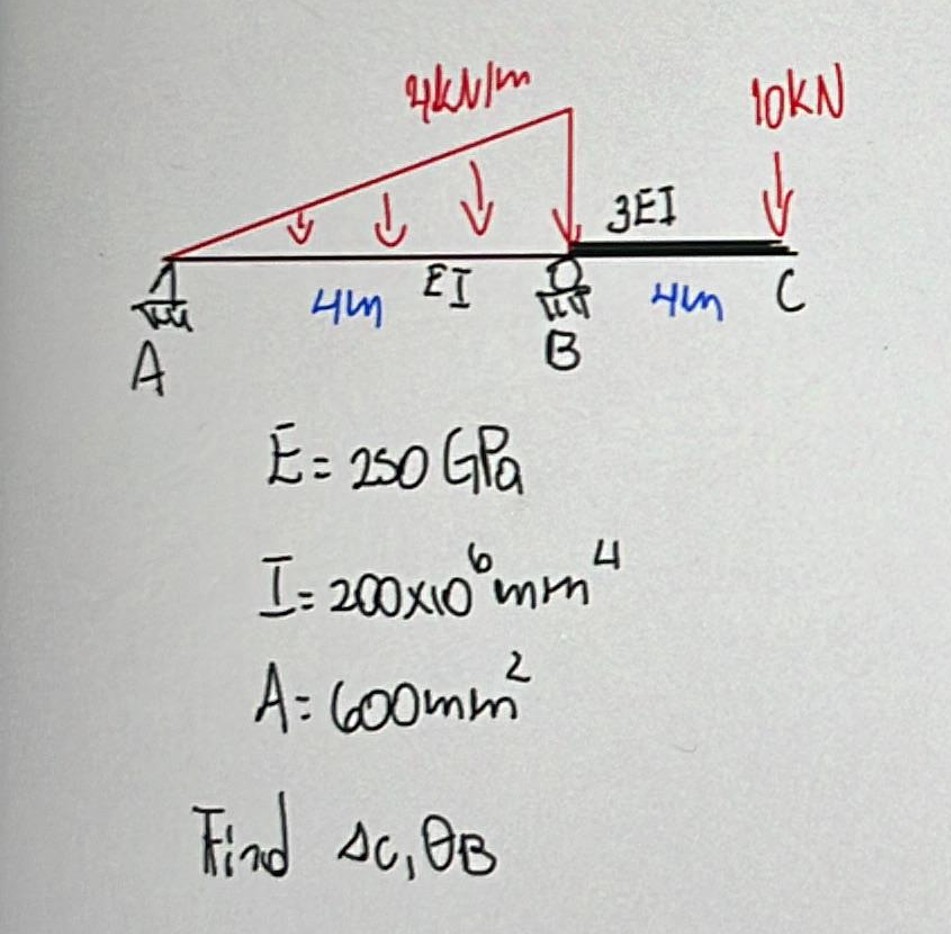 4kN/m
10kN
3EI
4m EI 4m C
A B
E= 250 GPa
I= 200x10⁶mm⁴
A= 600mm²
Find ΔC, θB